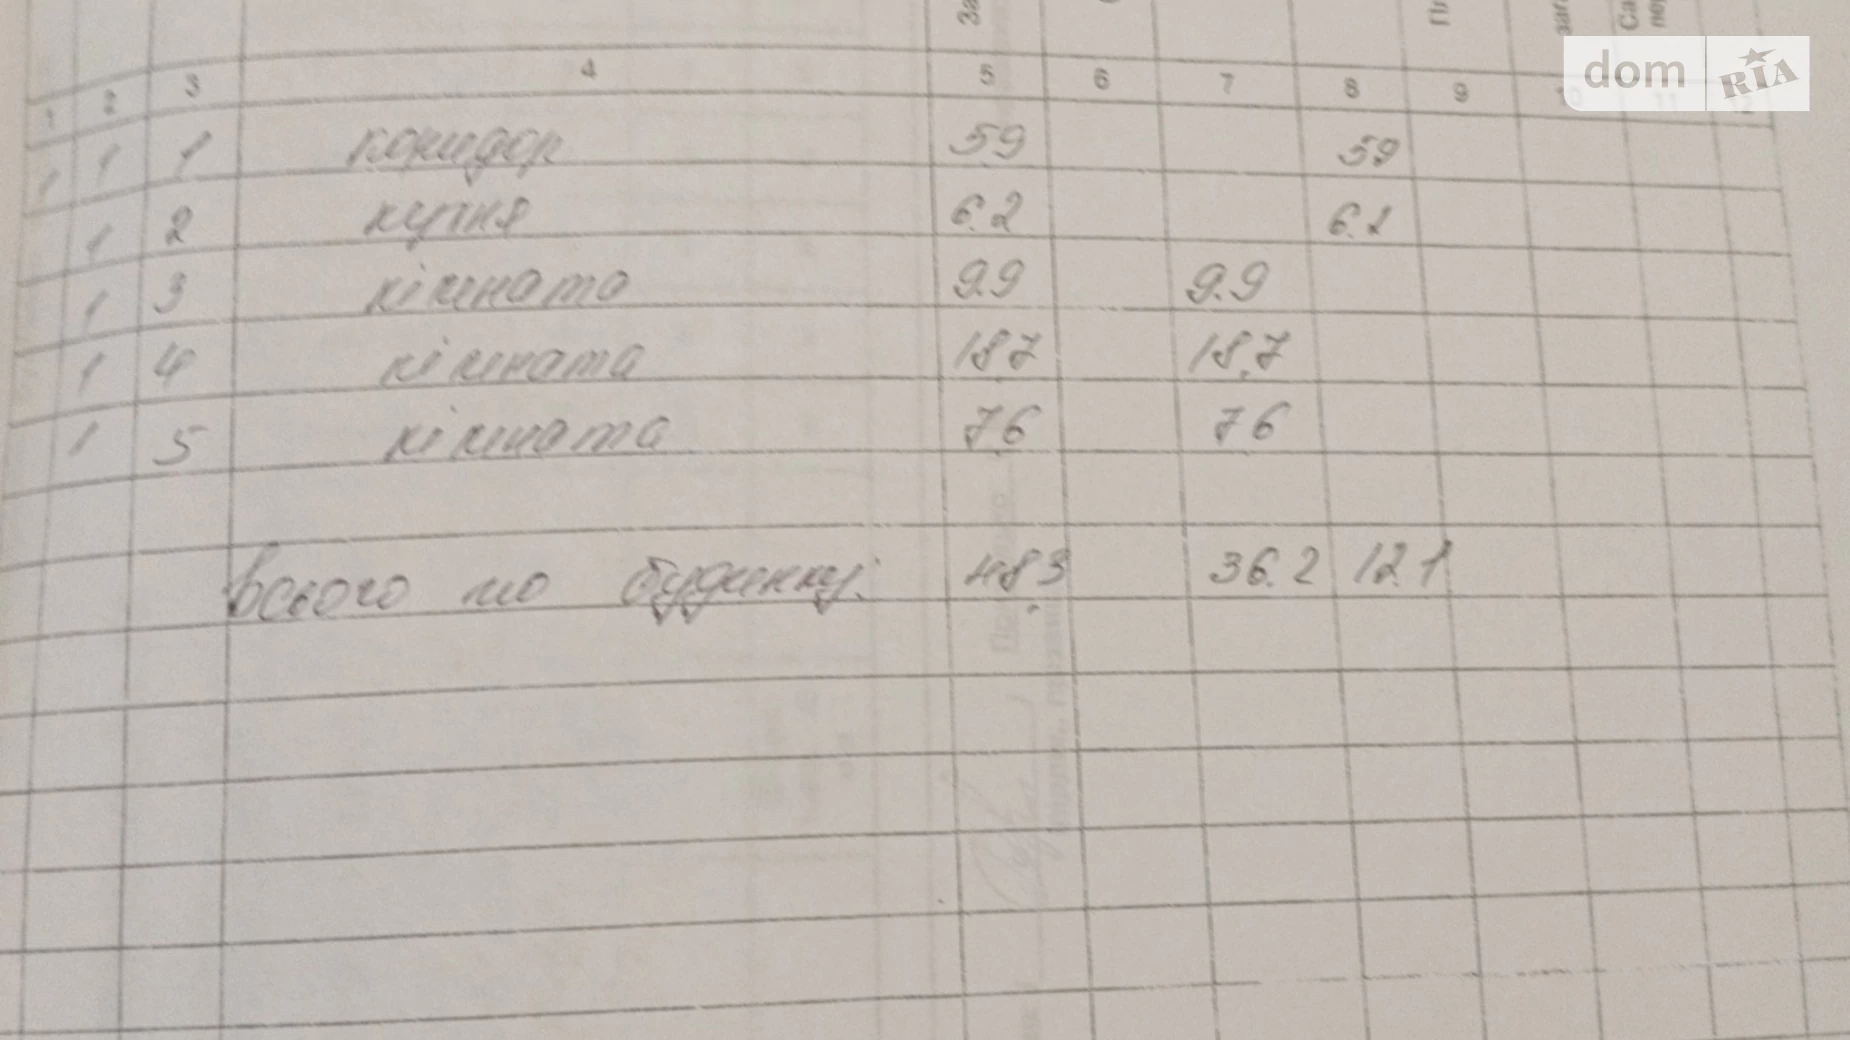 За
dom RIA
1 2 3 4 5 6 7 8 9 10 11
1 1 1 коридор 59 59
1 2 кухня 6.2 6.2
1 3 кімната 9.9 9.9
1 4 кімната 187 18.7
1 5 кімната 76 76
Всього по будинку: 48.3 36.2 12.1